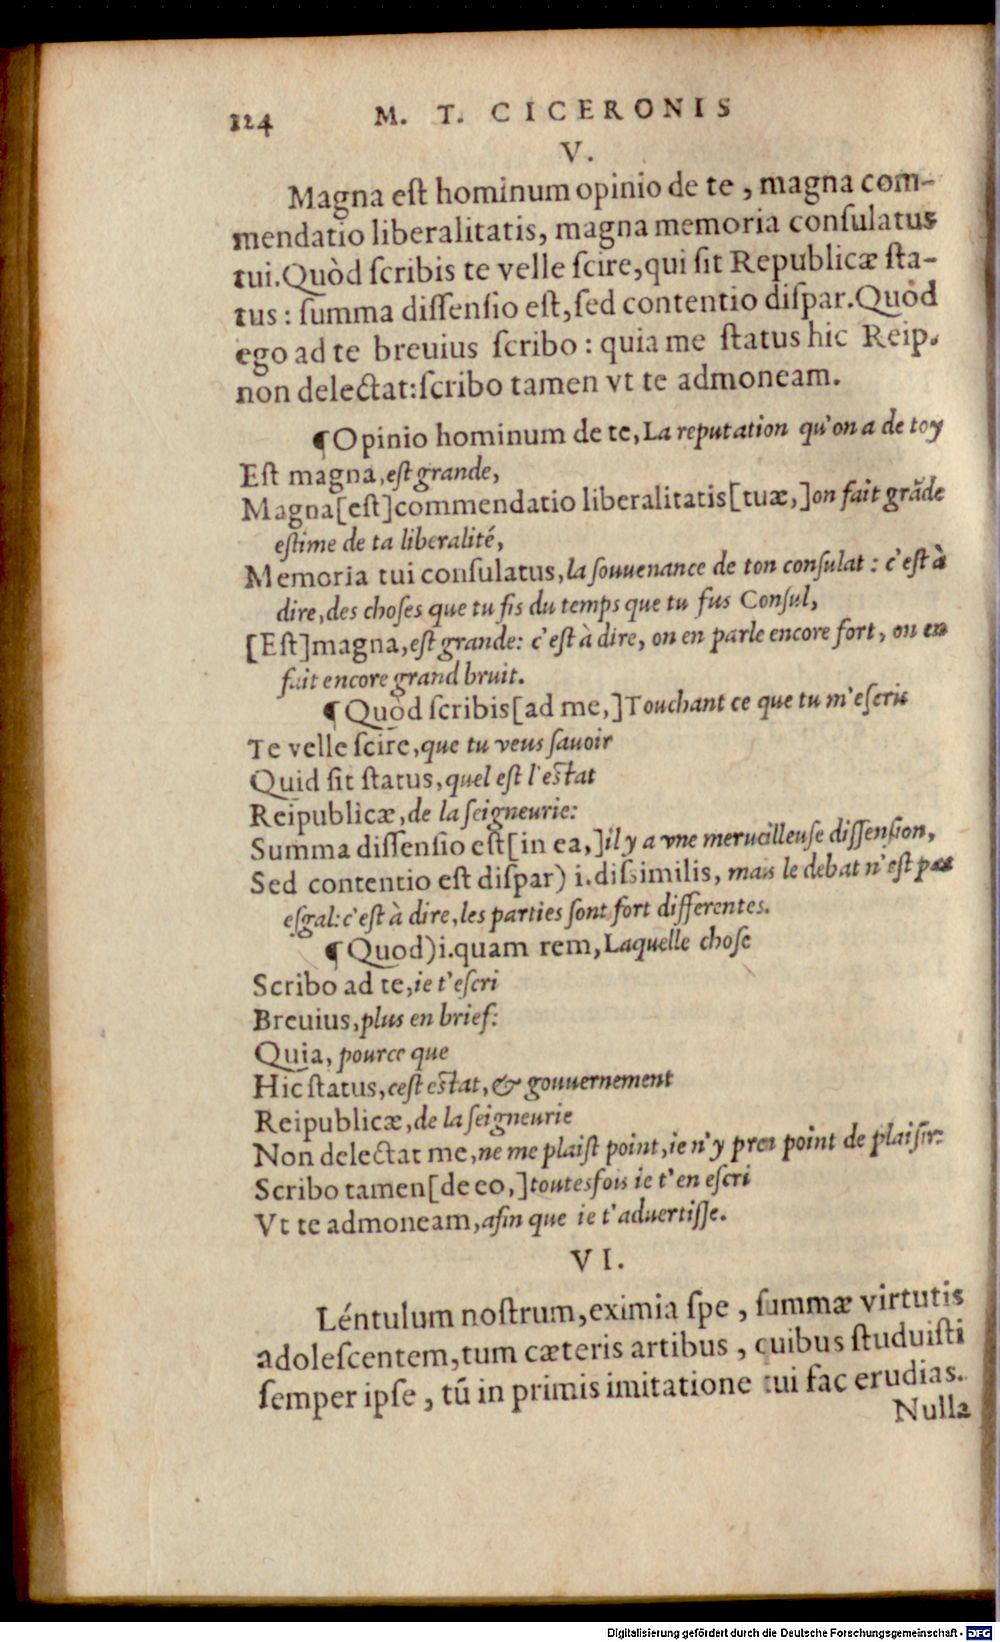 124 M. T. CICERONIS
V.
Magna eſt hominum opinio de te, magna com-
mendatio liberalitatis, magna memoria conſulatus
tui. Quòd ſcribis te velle ſcire, qui ſit Republicæ ſta-
tus: ſumma diſſenſio eſt, ſed contentio diſpar. Quòd
ego ad te breuius ſcribo: quia me ſtatus hic Reip.
non delectat: ſcribo tamen vt te admoneam.
¶Opinio hominum de te, La reputation qu'on a de toy
Eſt magna, eſt grande,
Magna [eſt] commendatio liberalitatis [tuæ,] on fait grãde
eſtime de ta liberalité,
Memoria tui conſulatus, la ſouuenance de ton conſulat: c'eſt à
dire, des choſes que tu fis du temps que tu fus Conſul,
[Eſt] magna, eſt grande: c'eſt à dire, on en parle encore fort, on en
fait encore grand bruit.
¶Quòd ſcribis [ad me,] Touchant ce que tu m'eſcris
Te velle ſcire, que tu veus ſauoir
Quid ſit ſtatus, quel eſt l'eſtat
Reipublicæ, de la ſeigneurie:
Summa diſſenſio eſt [in ea,] il y a vne merueilleuſe diſſenſion,
Sed contentio eſt diſpar) i. diſsimilis, mais le debat n'eſt pas
eſgal: c'eſt à dire, les parties ſont fort differentes.
¶Quod) i. quam rem, Laquelle choſe
Scribo ad te, ie t'eſcri
Breuius, plus en brief:
Quia, pource que
Hic ſtatus, ceſt eſtat, & gouuernement
Reipublicæ, de la ſeigneurie
Non delectat me, ne me plaiſt point, ie n'y pren point de plaiſir:
Scribo tamen [de eo,] toutesfois ie t'en eſcri
Vt te admoneam, afin que ie t'aduertiſſe.
VI.
Léntulum noſtrum, eximia ſpe, ſummæ virtutis
adoleſcentem, tum cæteris artibus, quibus ſtuduiſti
ſemper ipſe, tũ in primis imitatione tui fac erudias.
Nulla
Digitalisierung gefördert durch die Deutsche Forschungsgemeinschaft - DFG